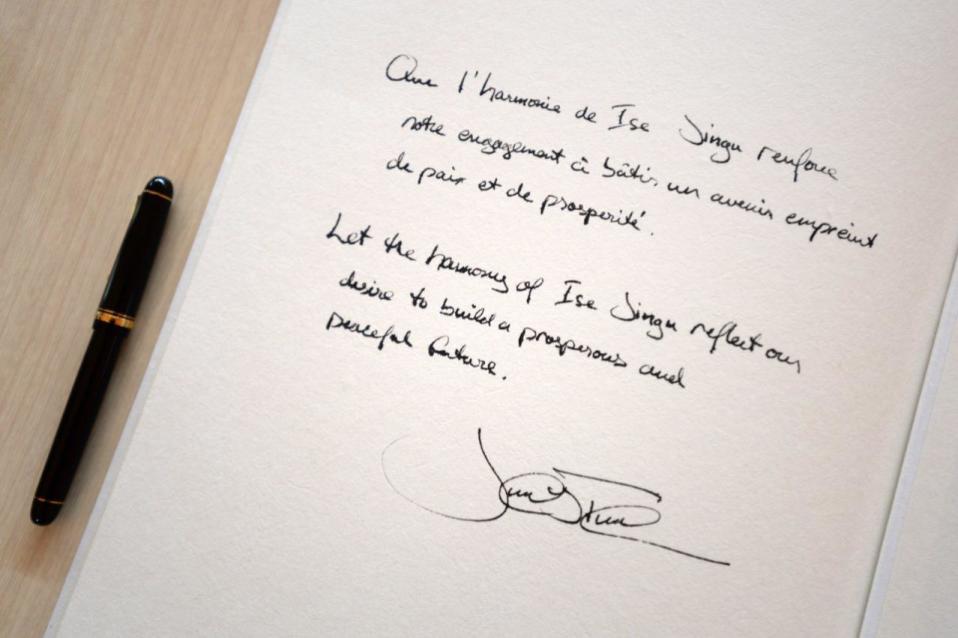 Que l'harmonie de Ise Jingu renforce
notre engagement à bâtir un avenir empreint
de paix et de prosperité.
Let the harmony of Ise Jingu reflect our
desire to build a prosperous and
peaceful future.